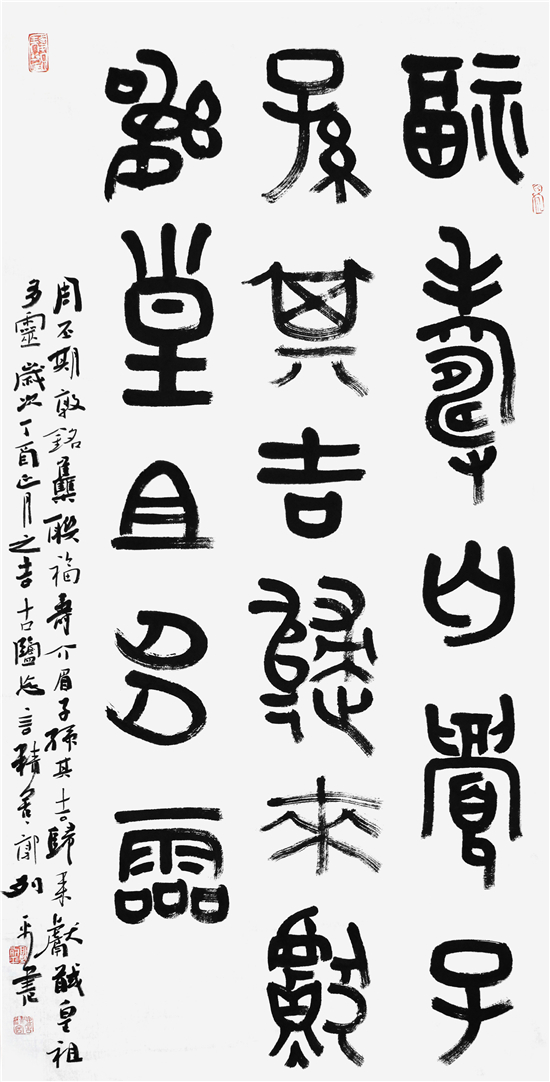 福壽介眉子
孫其吉歸來獻
馘皇祖多靈
周不期敦銘雧聯福壽介眉子孫其吉歸來獻馘皇祖
多靈歲次丁酉正月之吉古鹽言精舍郭列平書